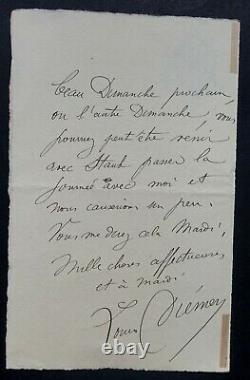 beau Dimanche prochain,
ou l'autre Dimanche, vous
pourriez peut être venir
avec Staub passer la
journée avec moi et
nous causerions un peu.
Vous me direz cela Mardi,
Mille choses affectueuses,
et à mardi
Louis Diémer
© thumb21.com